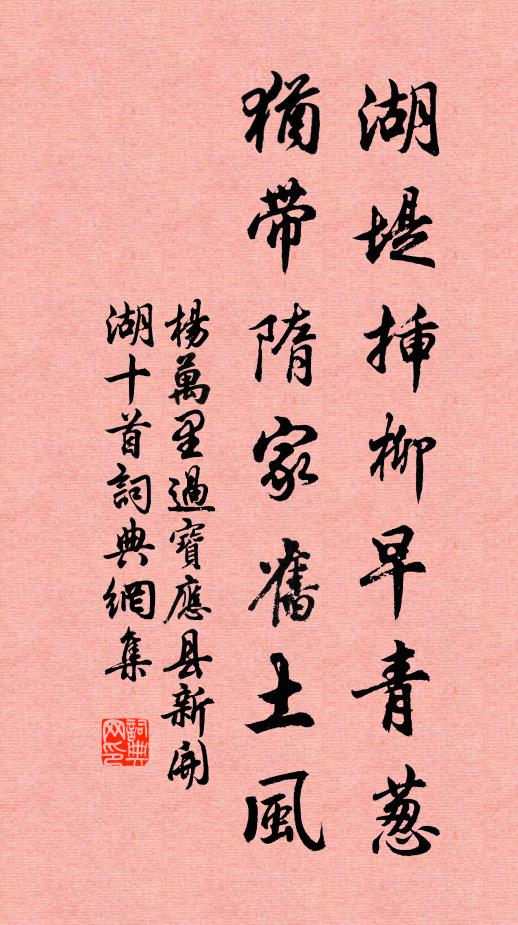 湖堤插柳早青蔥
猶帶隋家舊土風
楊萬里過寶應县新開
湖十首詞典網集
詞典网印